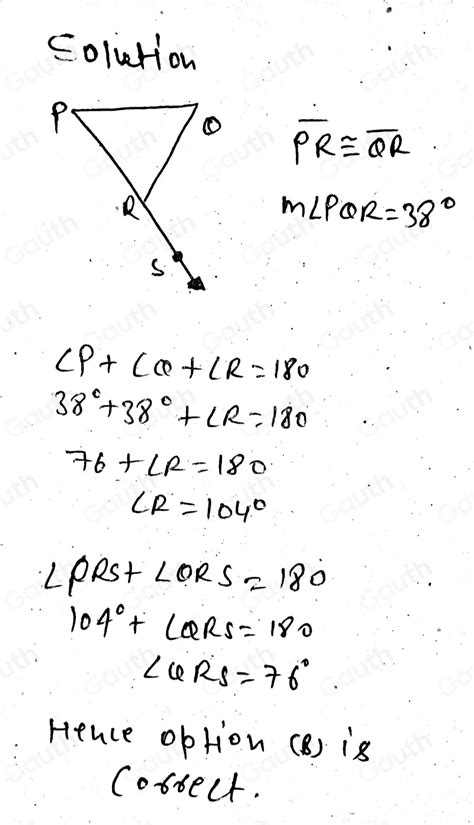 Solution
P Q
R
S
PR ≅ QR
m∠PQR=38°
∠P+∠Q+∠R=180
38°+38°+∠R=180
76+∠R=180
∠R=104°
∠PRS+∠QRS=180
104°+∠QRS=180
∠QRS=76°
Hence option (B) is
Correct.